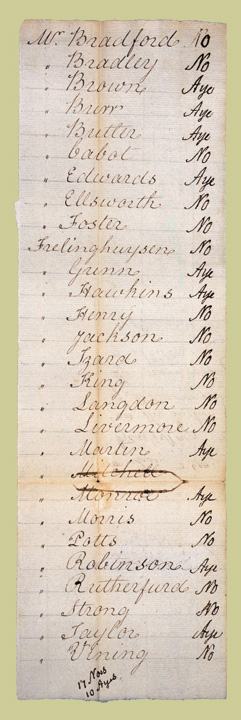 Mr. Bradford No
" Bradley No
" Brown Aye
" Burr Aye
" Butler Aye
" Cabot No
" Edwards Aye
" Ellsworth No
" Foster No
Frelinghuysen No
" Gunn Aye
" Hawkins Aye
" Henry No
" Jackson No
" Izard No
" King No
" Langdon No
" Livermore No
" Martin Aye
" Mitchell
" Monroe Aye
" Morris No
" Potts No
" Robinson Aye
" Rutherfurd No
" Strong No
" Taylor Aye
" Vining No
17 Noes
10 Ayes